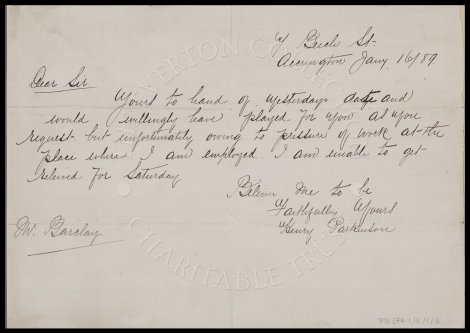 Beech St.
Accrington Jany. 16/89
Dear Sir
Yours to hand of yesterdays date and
would willingly have played for you as you
request but unfortunately owing to pressure of work at the
place where I am employed. I am unable to get
relieved for Saturday
Believe me to be
Faithfully Yours
Henry Parkinson
Mr. Barclay
EVERTON
CHARITABLE TRUST
796 EFC 1/4/1/3